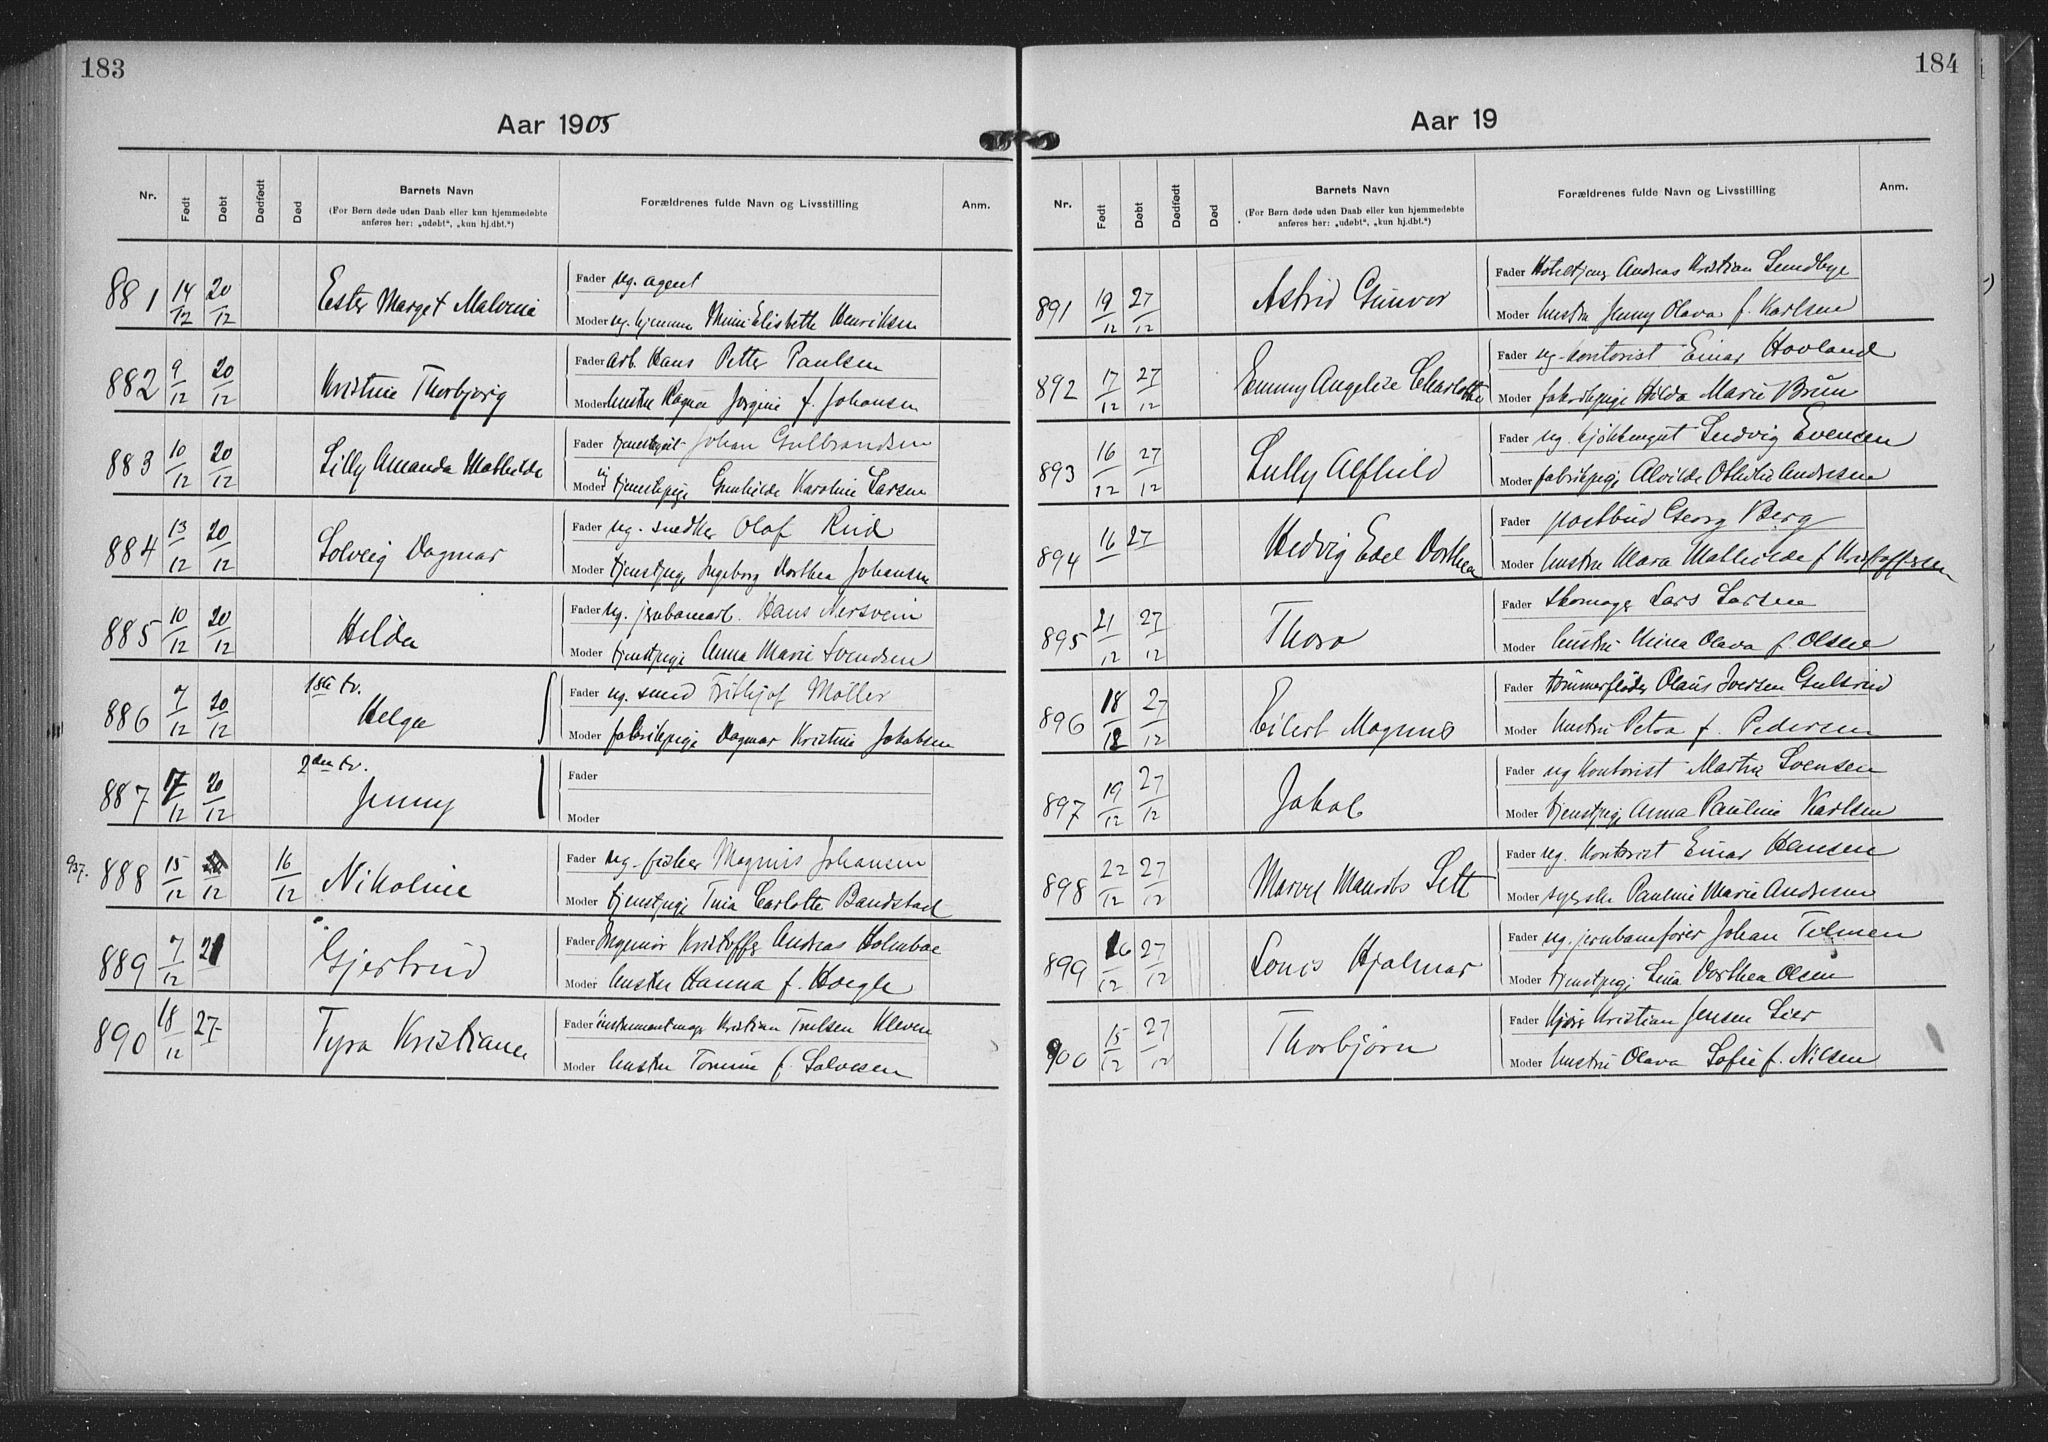 183
Aar 1905
Nr. Født Døbt Dødfødt Død Barnets Navn Forældrenes fulde Navn og Livsstilling Anm.
(For Børn døde uden Daab eller kun hjemmedøbte
anføres her: „udøbt“, „kun hj.dbt.“)
881 14/12 20/12 Ester Marget Malvina Fader ug. agent
Moder ug. hjemme Mimi Elisbette Henriksen
882 9/12 20/12 Kristine Thorbjørg Fader arb. Hans Petter Paulsen
Moder hustru Ragna Jørgine f. Johansen
883 10/12 20/12 Lilly Amanda Mathilde Fader Johan Gulbrandsen
Moder tjenestepige Gunhilde Karoline Larsen
884 13/12 20/12 Solveig Dagmar Fader ug. snedker Olaf Rud
Moder tjenstpige Ingeborg Dorthea Johansen
885 10/12 20/12 Hilda Fader ug. jernbanearb. Hans Nersvein
Moder tjenstpige Anna Marie Svendsen
886 7/12 20/12 1ste tv. Helga Fader ug. smed Frithjof Møller
Moder fabrikpige Dagmar Kristine Jakobsen
887 17/12 20/12 2den tv. Jenny Fader
Moder
937. 888 15/12 16/12 Nikoline Fader ug. fisker Magnus Johansen
Moder tjenstpige Tina Carlotte Bandstad
889 7/12 21 Gjertrud Fader Ingeniør Kristoffer Andreas Holmboe
Moder hustru Hanna f. Hoegh
890 18/12 27 Tyra Kristiane Fader instrumentmager Kristian Trulsen Kleven
Moder hustru Tomine f. Salvesen
184
Aar 19
Nr. Født Døbt Dødfødt Død Barnets Navn Forældrenes fulde Navn og Livsstilling Anm.
(For Børn døde uden Daab eller kun hjemmedøbte
anføres her: „udøbt“, „kun hj.dbt.“)
891 19/12 27/12 Astrid Gunvor Fader Hoteltjener Andreas Kristian Lundbye
Moder hustru Jenny Olava f. Karlsen
892 17/12 27/12 Emmy Angelise Charlotte Fader ug. kontorist Einar Hovland
Moder fabrikpige Hilda Marie Brun
893 16/12 27/12 Lully Alfhild Fader ug. Ludvig Evensen
Moder fabrikpige Alvilde Othilie Andresen
894 16 27 Hedvig Edel Dorthea Fader postbud Georg Berg
Moder hustru Klara Mathilde f. Kristoffersen
895 21/12 27/12 Thora Fader skomager Lars Larsen
Moder hustru Mina Olava f. Olsen
896 18/12 27/12 Eilert Magnus Fader tømmerfløder Olaus Iversen Gulsrud
Moder hustru Petra f. Pedersen
897 19/12 27/12 Jakob Fader ug kontorist Martin Svensen
Moder tjenstpige Anna Pauline Karlsen
898 22/12 27/12 Fader ug. kontorist Einar Hansen
Moder syerske Pauline Marie Andresen
899 16/12 27/12 Louis Hjalmar Fader ug. jernbanefører Johan
Moder tjenstpige Lina Dorthea Olsen
900 15/12 27/12 Thorbjørn Fader Kristian Jensen Lier
Moder hustru Olava Sofie f. Nilsen